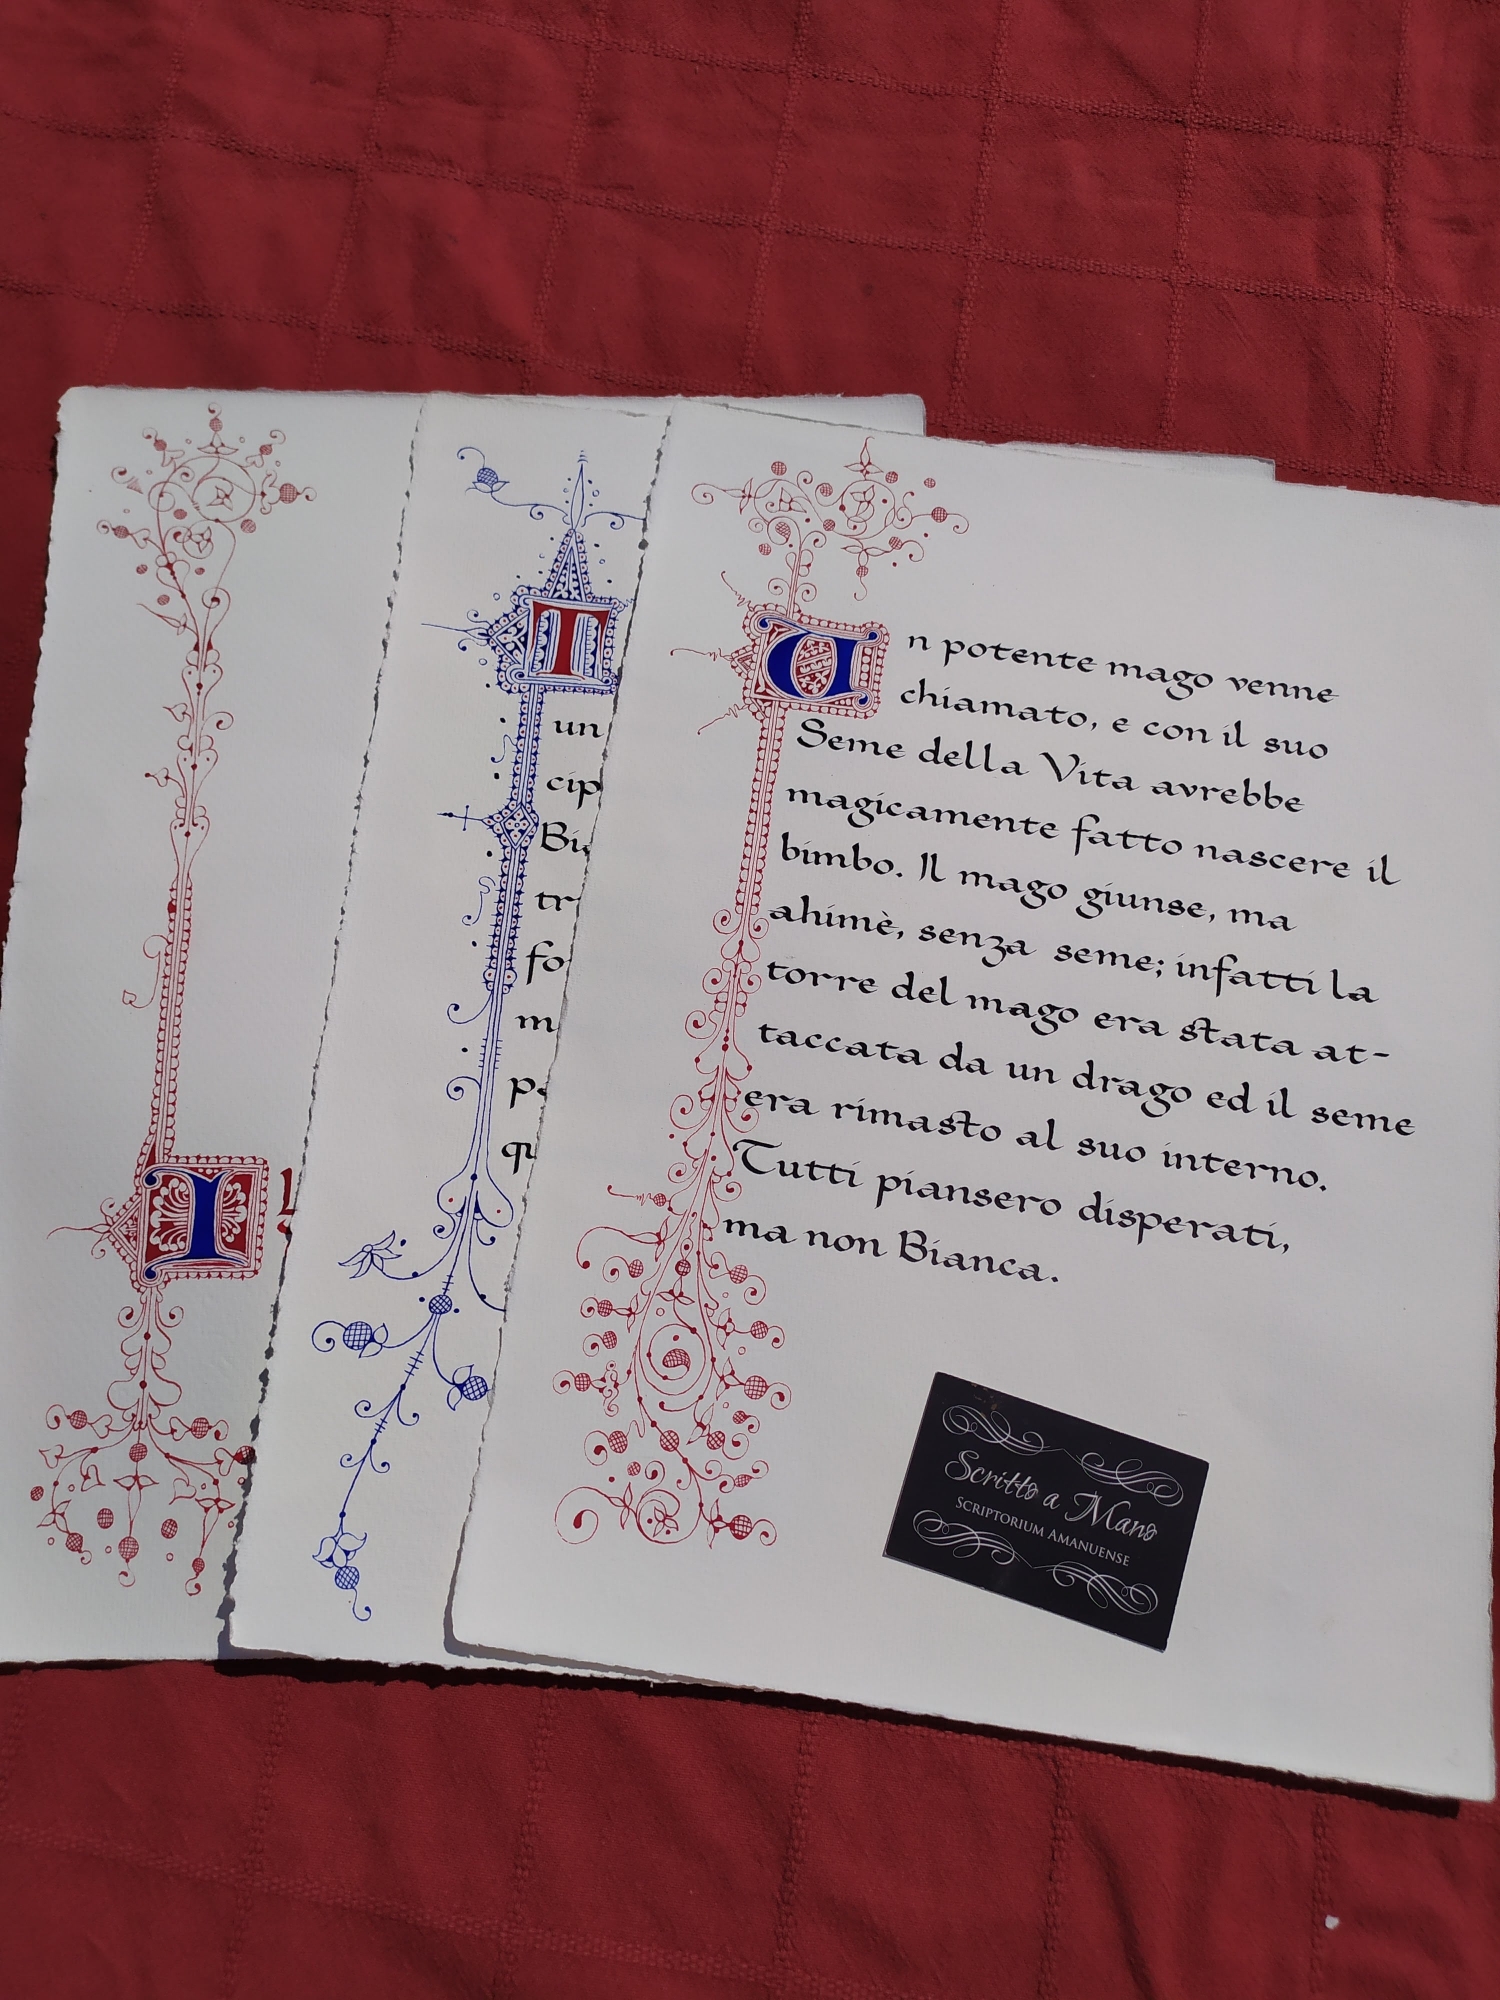 I
T
un
cip
tr
fo
m
qu
Un potente mago venne
chiamato, e con il suo
Seme della Vita avrebbe
magicamente fatto nascere il
bimbo. Il mago giunse, ma
ahimè, senza seme; infatti la
torre del mago era stata at-
taccata da un drago ed il seme
era rimasto al suo interno.
Tutti piansero disperati,
ma non Bianca.
Scritto a Mano
SCRIPTORIUM AMANUENSE